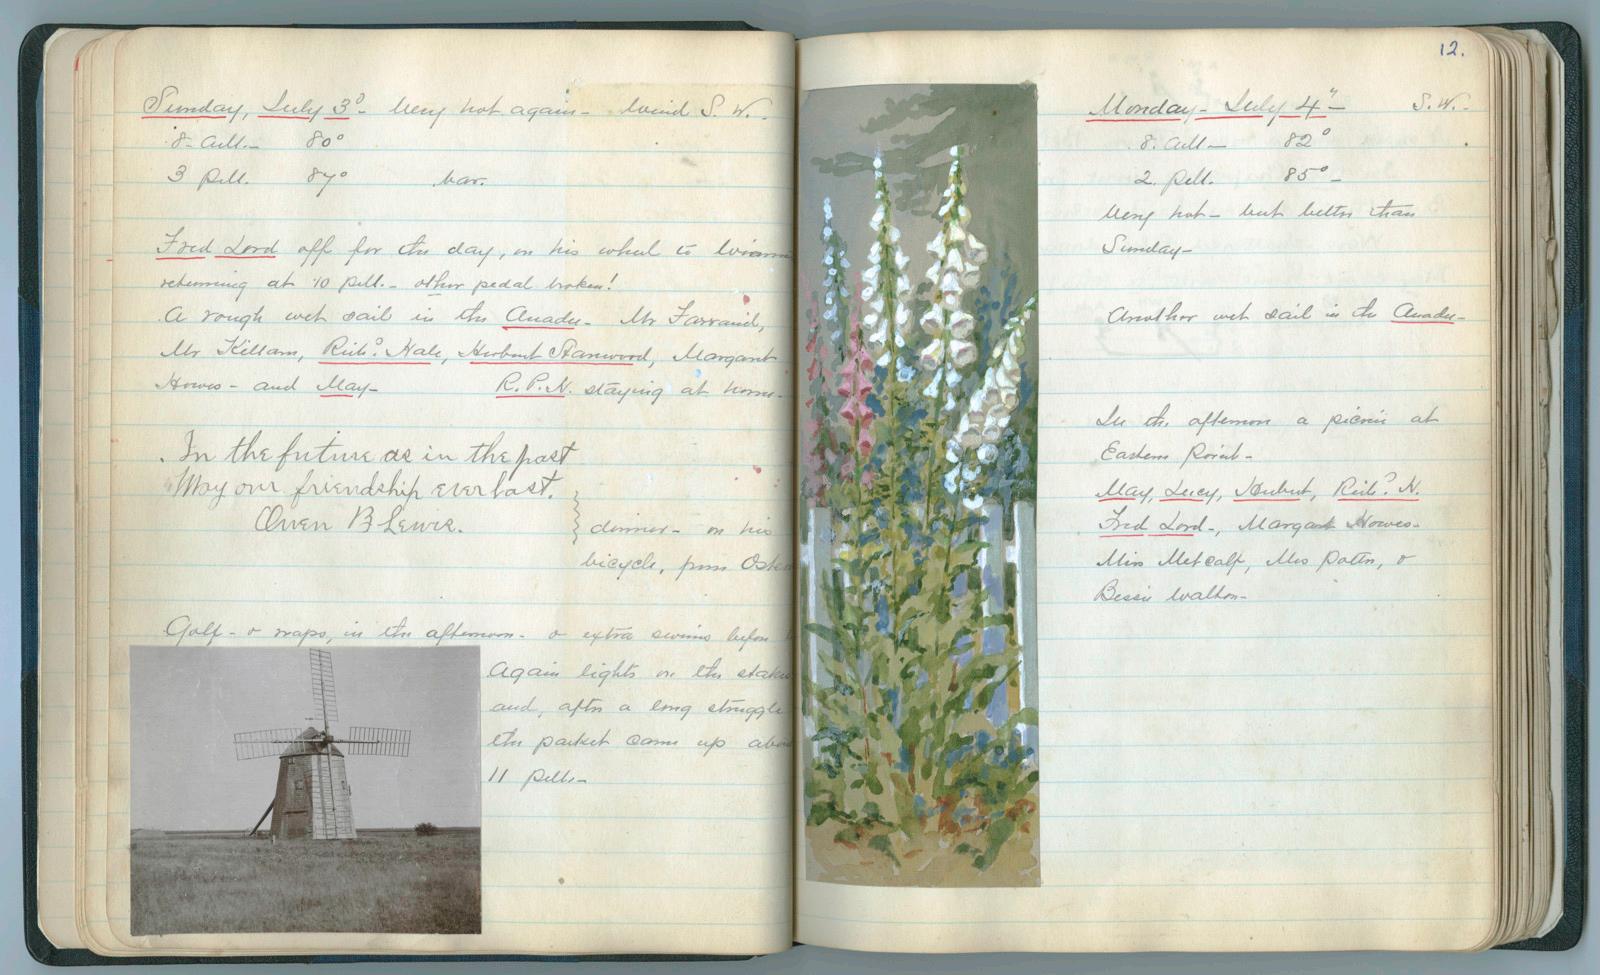 Sunday, July 3d - Very hot again - Wind S. W.
8 - A.M. - 80°
3 P.M. 87° bar.
Fred Lord off for the day, on his wheel to
returning at 10 P.M. - other pedal broken!
A rough wet sail in the Anadu - Mr Farraind,
Mr Killam, Richd. Hale, Herbert Stanwood, Margaret
Howes - and May - R.P.N. staying at home -
In the future as in the past
May our friendship ever last.
Owen B Lewis.
dinner - on his
bicycle, from
Golf - & naps, in the afternoon - & extra swims before
Again lights on the stake
and, after a long struggle
the packet came up
11 P.M. -
12.
Monday - July 4" - S.W. -
8. A.M. - 82°
2. P.M. 85° -
Very hot - but better than
Sunday -
Another wet sail in the Anadu -
In the afternoon a picnic at
Eastern Point -
May, Lucy, Herbert, Richd. H.
Fred Lord -, Margaret Howes -
Miss Metcalf, Mrs Patten, &
Bessie Walton -